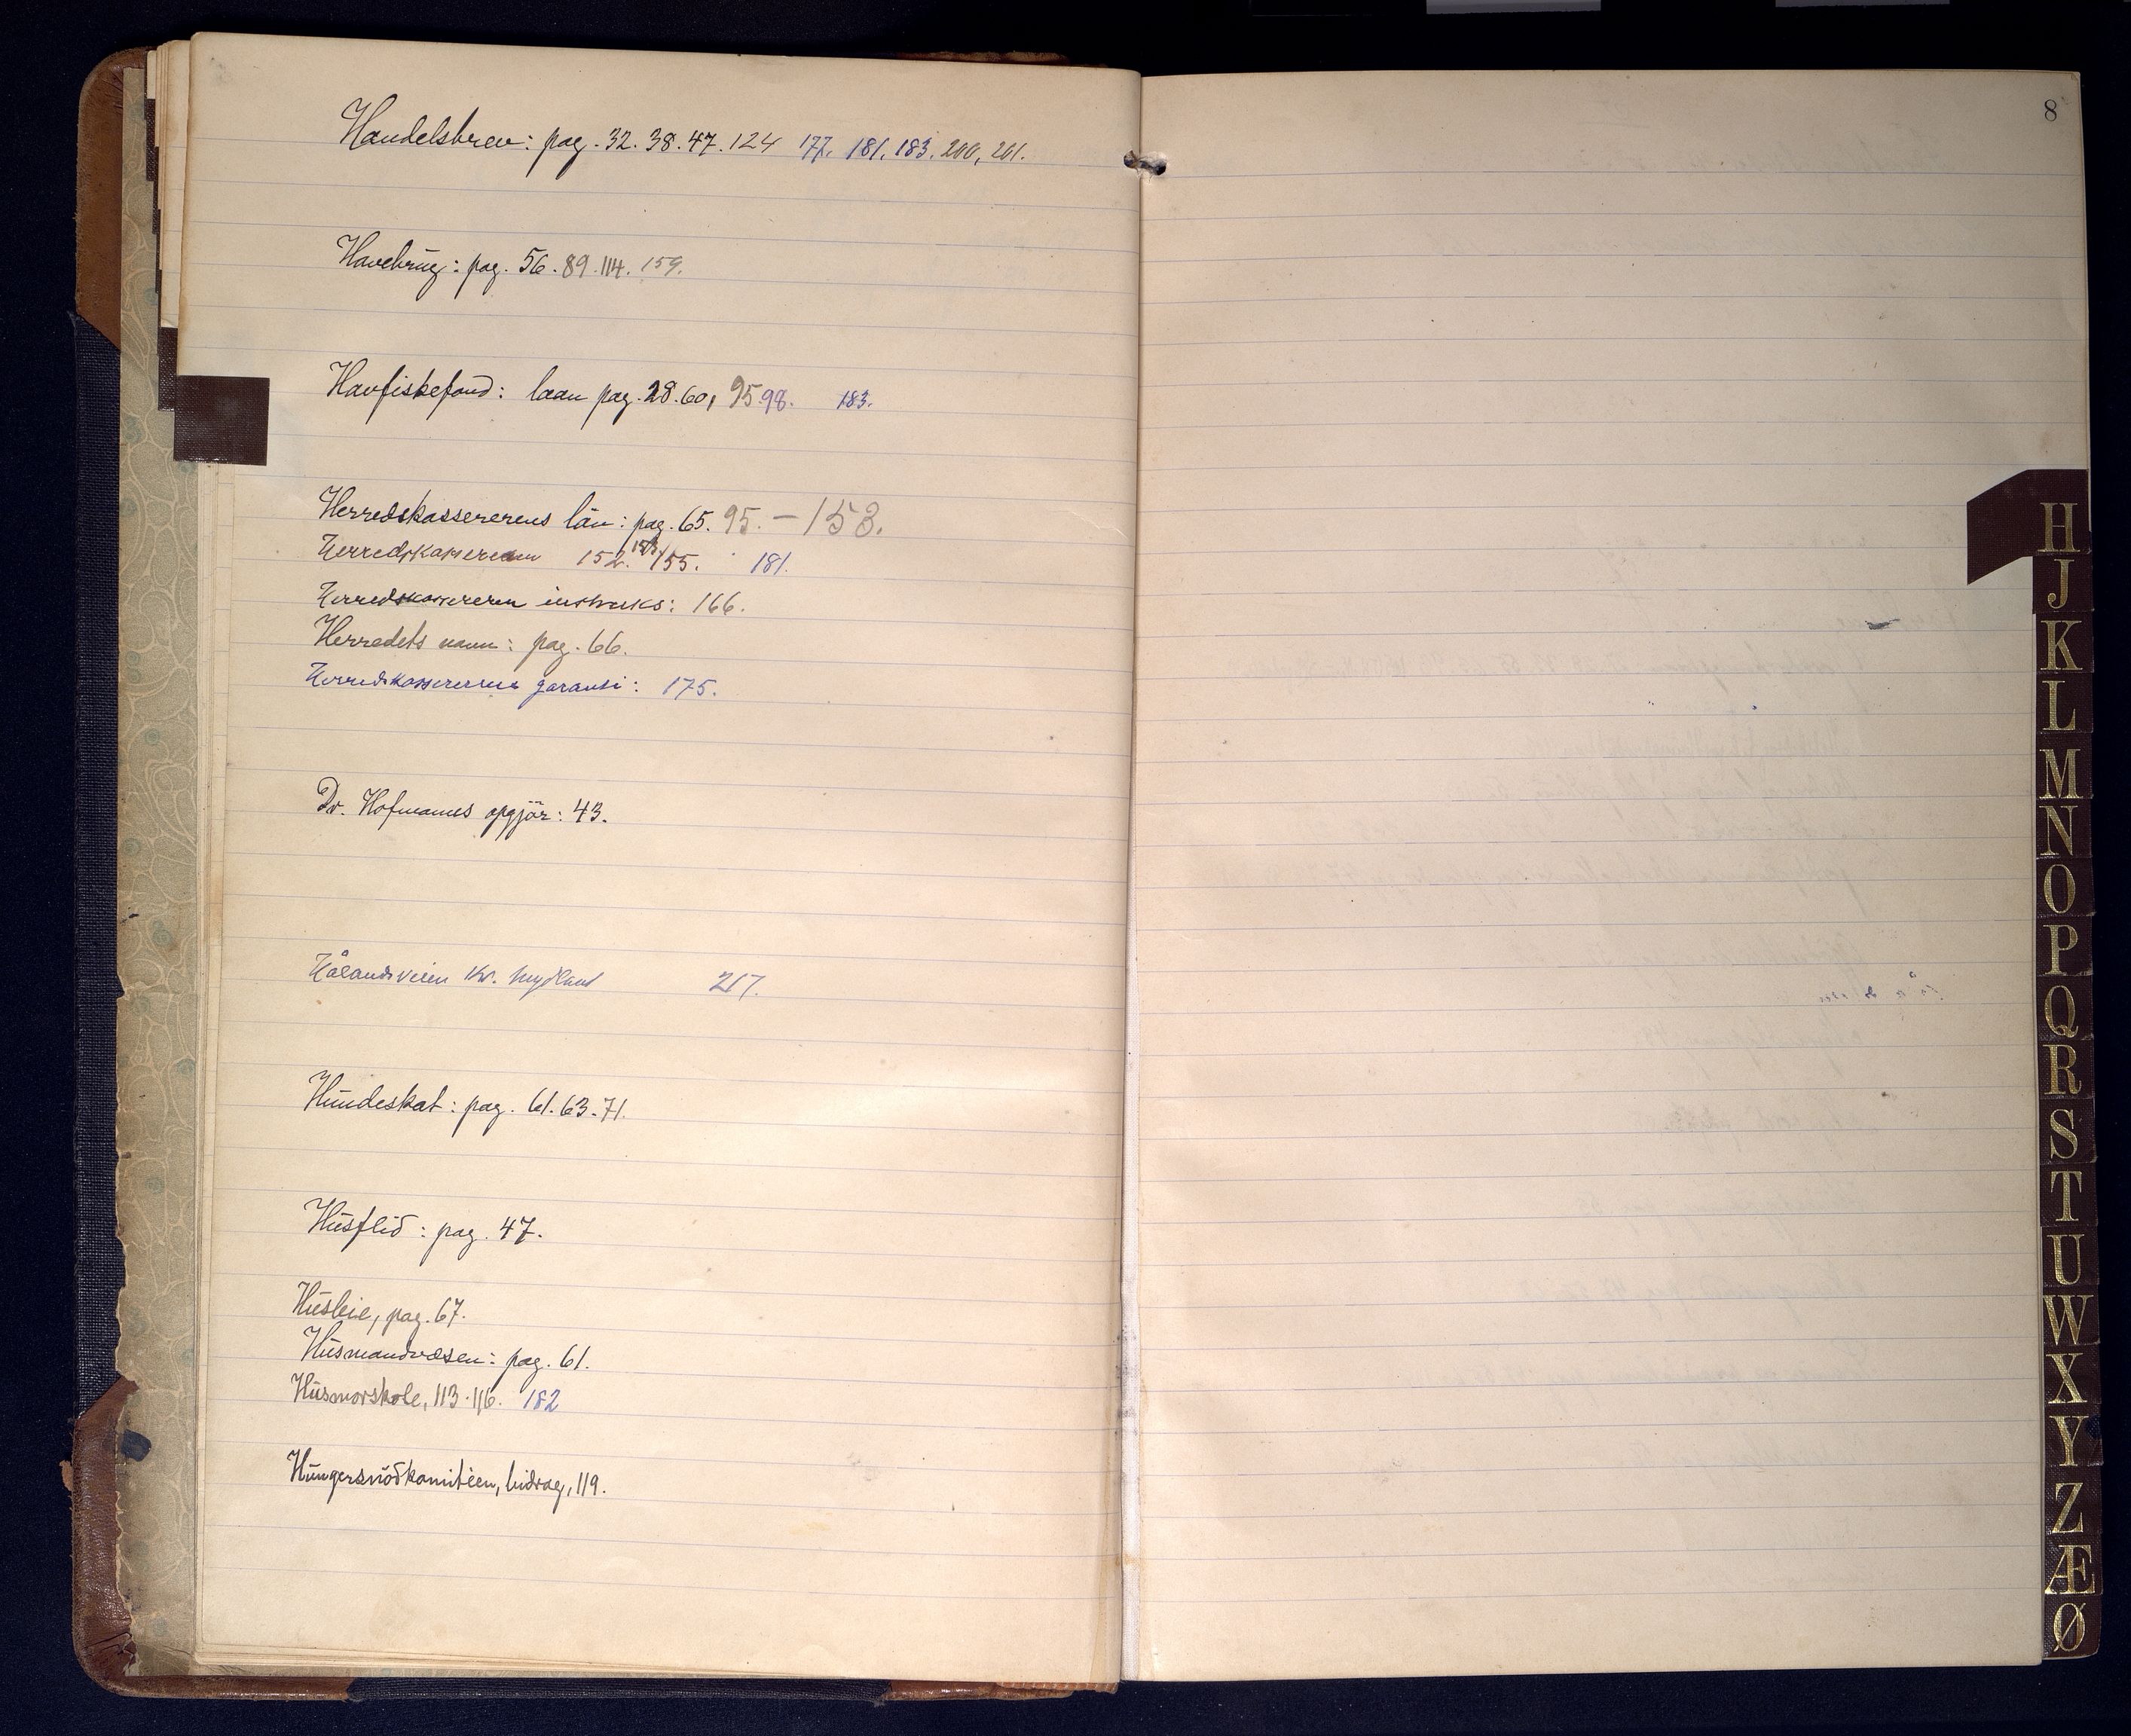 Handelsbrev: pag. 32. 38. 47. 124 177. 181. 183. 200, 201.
Havebrug: pag. 56. 89. 114. 159.
Havfiskefond: laan pag. 28. 60, 95. 98. 183.
Herredskassererens lån: pag. 65. 95. – 153.
Herredskasereren 152. 153/155. 181.
Herredskassereren instruks: 166.
Herredets navn: pag. 66.
Herredskassererens garanti: 175.
Dr. Hofmanns opgjör: 43.
Hålandsveien Kv. Mydland 217.
Hundeskat: pag. 61. 63. 71.
Husflid: pag. 47.
Husleie, pag. 67.
Husmandvæsen: pag. 61.
Husmorskole, 113. 116. 182
Hungersnödkomitéen, bidrag, 119.
8
H
J
K
L
M
N
O
P
Q
R
S
T
U
W
X
Y
Z
Æ
Ø